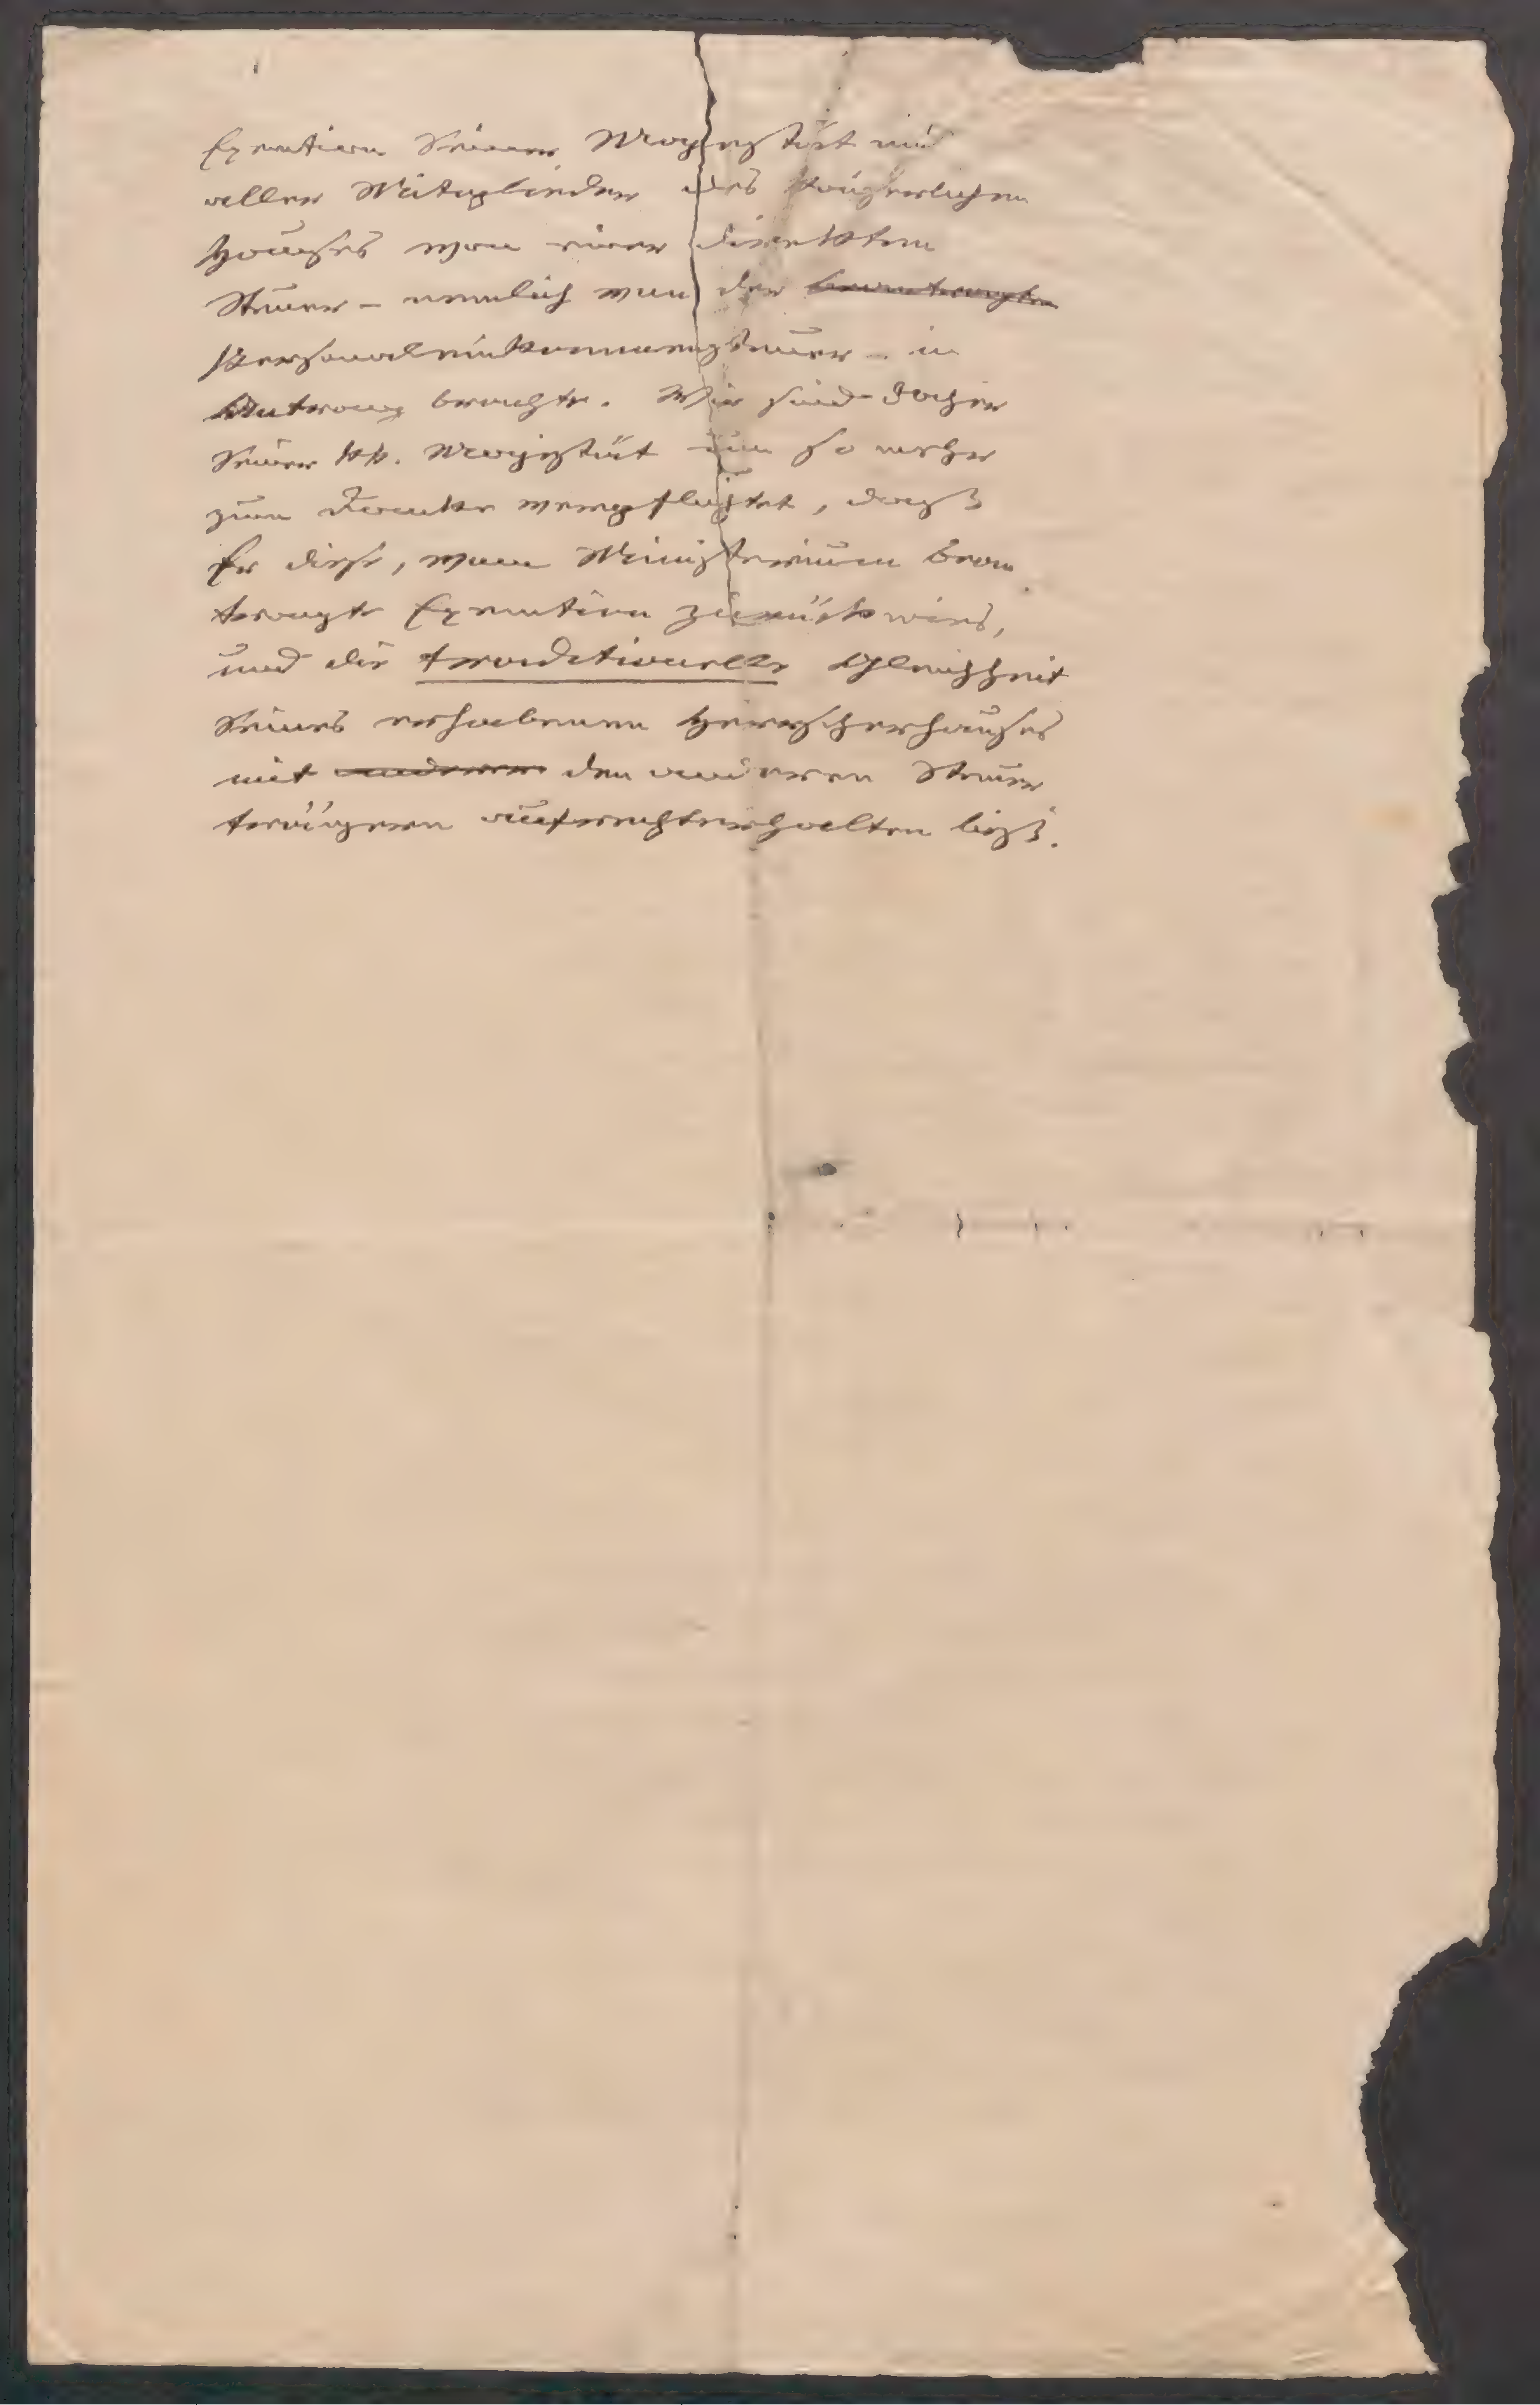 Exemtion Seiner Majestät und
aller Mitglieder des kaiserlichen
Hauses von einer direkten
Steuer – nemlich von der beantragten
Personaleinkommensteuer – in
Antrag brachte. Wir sind daher
Seiner kk. Majestät um so mehr
zum Danke verpflichtet, dass
Er diese, vom Ministerium bean
tragte Exemtion zurückwies,
und die traditionelle Gleichheit
Seines erhabenen Herrscherhauses
mit anderen den anderen Steuer
trägern aufrechterhalten liess.